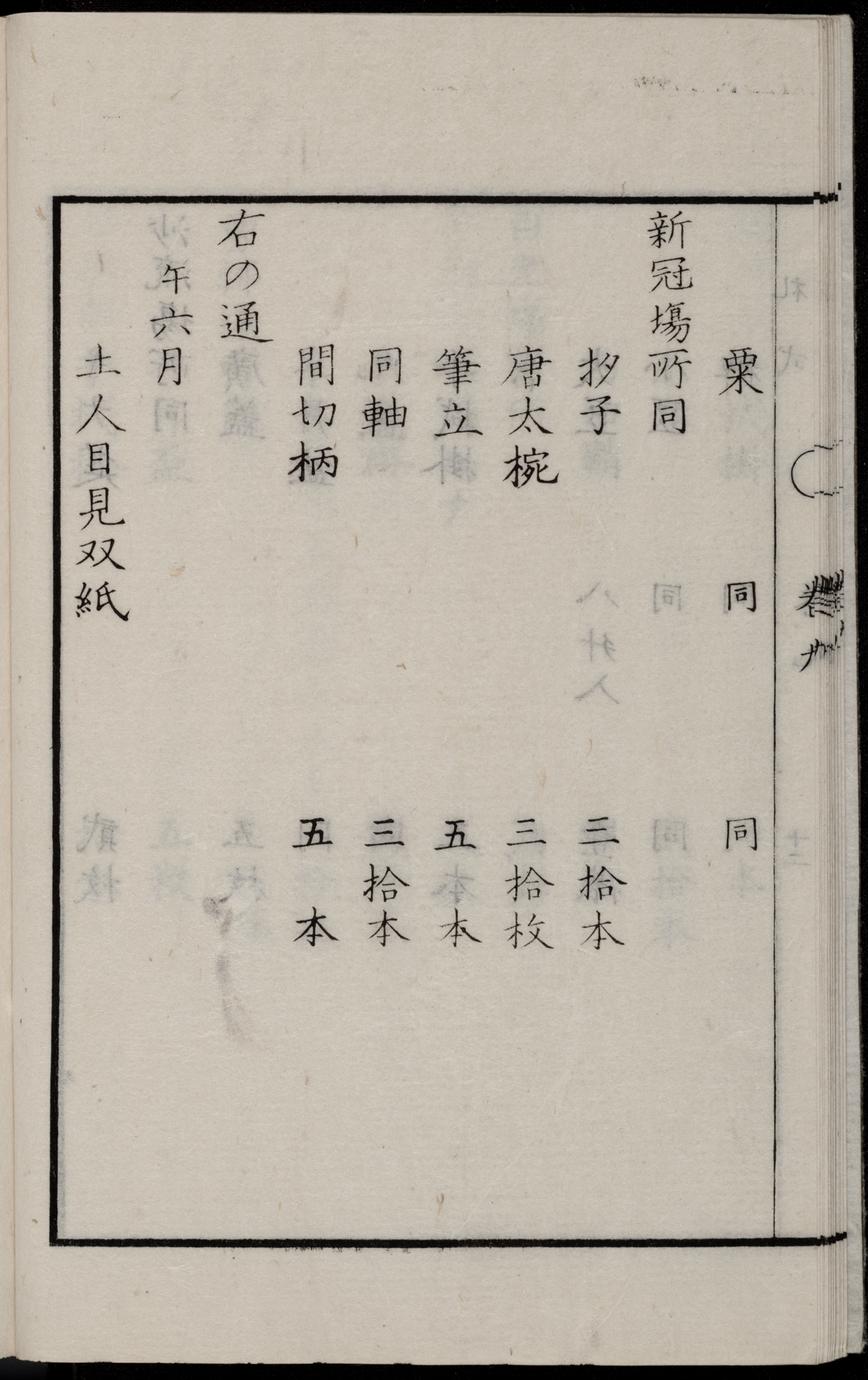 粟 同 同
新冠場所同
杉子 三拾本
唐太椀 三拾枚
筆立 五本
同軸 三拾本
間切柄 五本
右の通
午六月
土人目見双紙